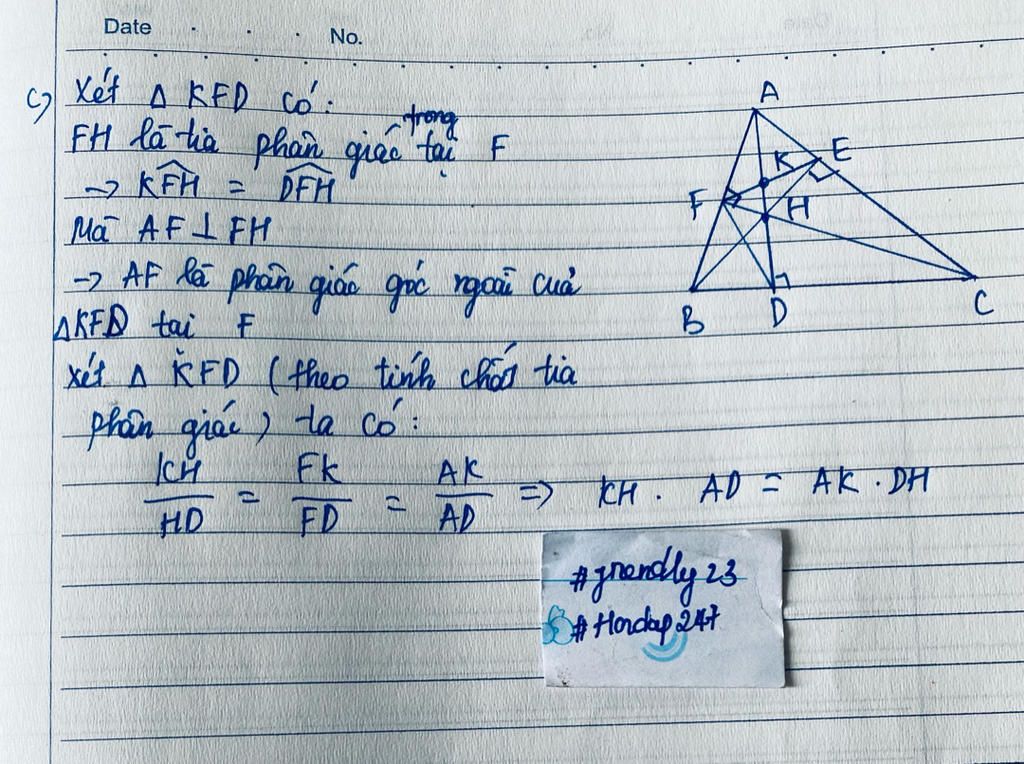 Date
No.
c) Xét Δ KFD có:
FH là tia phân giác trong tại F
→ KFH = DFH
Mà AF ⊥ FH
→ AF là phân giác góc ngoài của
ΔKFD tại F
Xét Δ KFD (theo tính chất tia
phân giác) ta có:
KH/HD = FK/FD = AK/AD => KH . AD = AK . DH
A
K E
F H
B D C
#friendly23
#Hoidap247